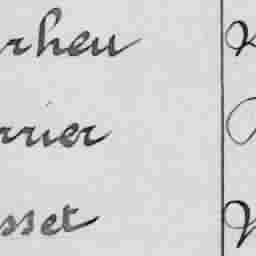 rheu
rrier
sset